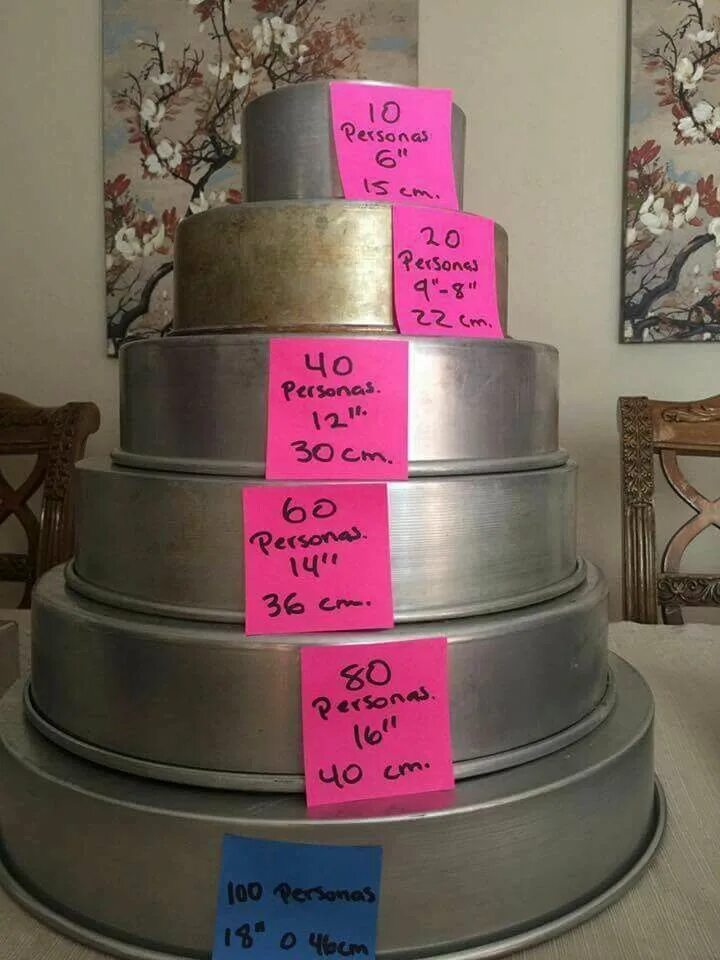 10
Personas
6"
15 cm.
20
Personas
9"-8"
22 cm.
40
Personas.
12"
30 cm.
60
Personas.
14"
36 cm.
80
Personas.
16"
40 cm.
100 Personas
18" o 46cm